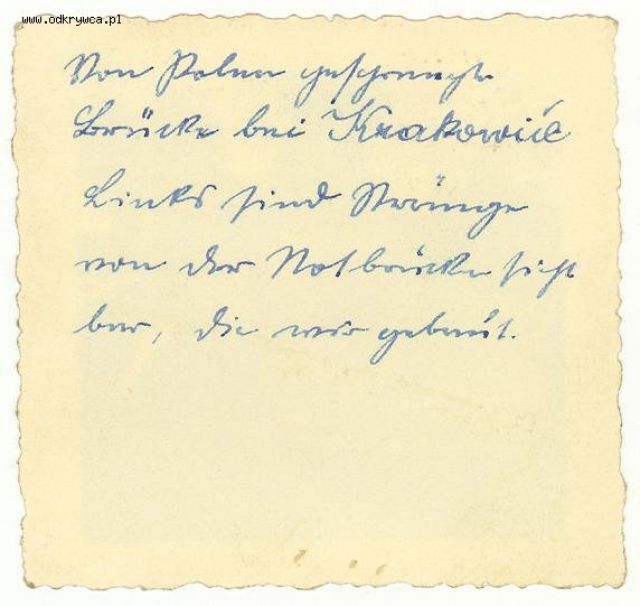 www.odkrywca.pl
Von Polen gesprengte
Brücke bei Krakowić
Links sind Stränge
von der Notbrücke sicht
bar, die wir gebaut.